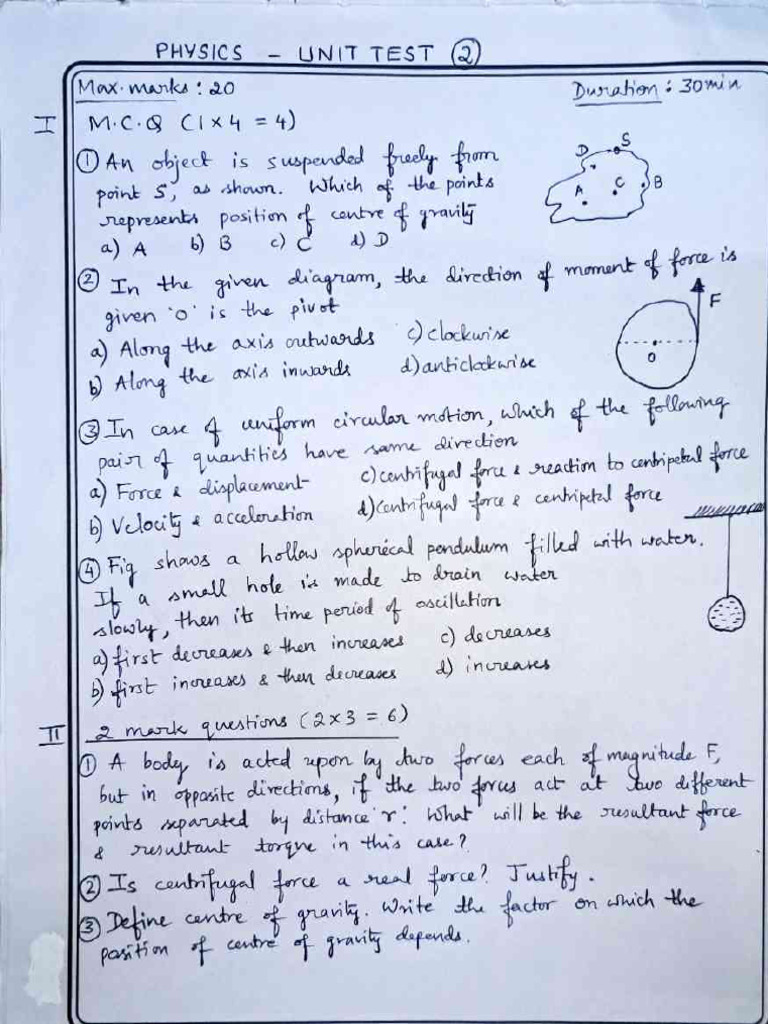 PHYSICS - UNIT TEST (2)
Max. marks : 20 Duration : 30 min
I M.C.Q (1 x 4 = 4)
① An object is suspended freely from
point S, as shown. Which of the points
represents position of centre of gravity
a) A b) B c) C d) D
D S A C B
② In the given diagram, the direction of moment of force is
given 'O' is the pivot
a) Along the axis outwards c) clockwise
b) Along the axis inwards d) anticlockwise
F
O
③ In case of uniform circular motion, which of the following
pair of quantities have same direction
a) Force & displacement c) centrifugal force & reaction to centripetal force
b) Velocity & acceleration d) Centrifugal force & centripetal force
④ Fig shows a hollow spherical pendulum filled with water.
If a small hole is made to drain water
slowly, then its time period of oscillation
a) first decreases & then increases c) decreases
b) first increases & then decreases d) increases
II 2 mark questions (2 x 3 = 6)
① A body is acted upon by two forces each of magnitude F,
but in opposite directions, if the two forces act at two different
points separated by distance 'r'. What will be the resultant force
& resultant torque in this case?
② Is centrifugal force a real force? Justify.
③ Define centre of gravity. Write the factor on which the
position of centre of gravity depends.